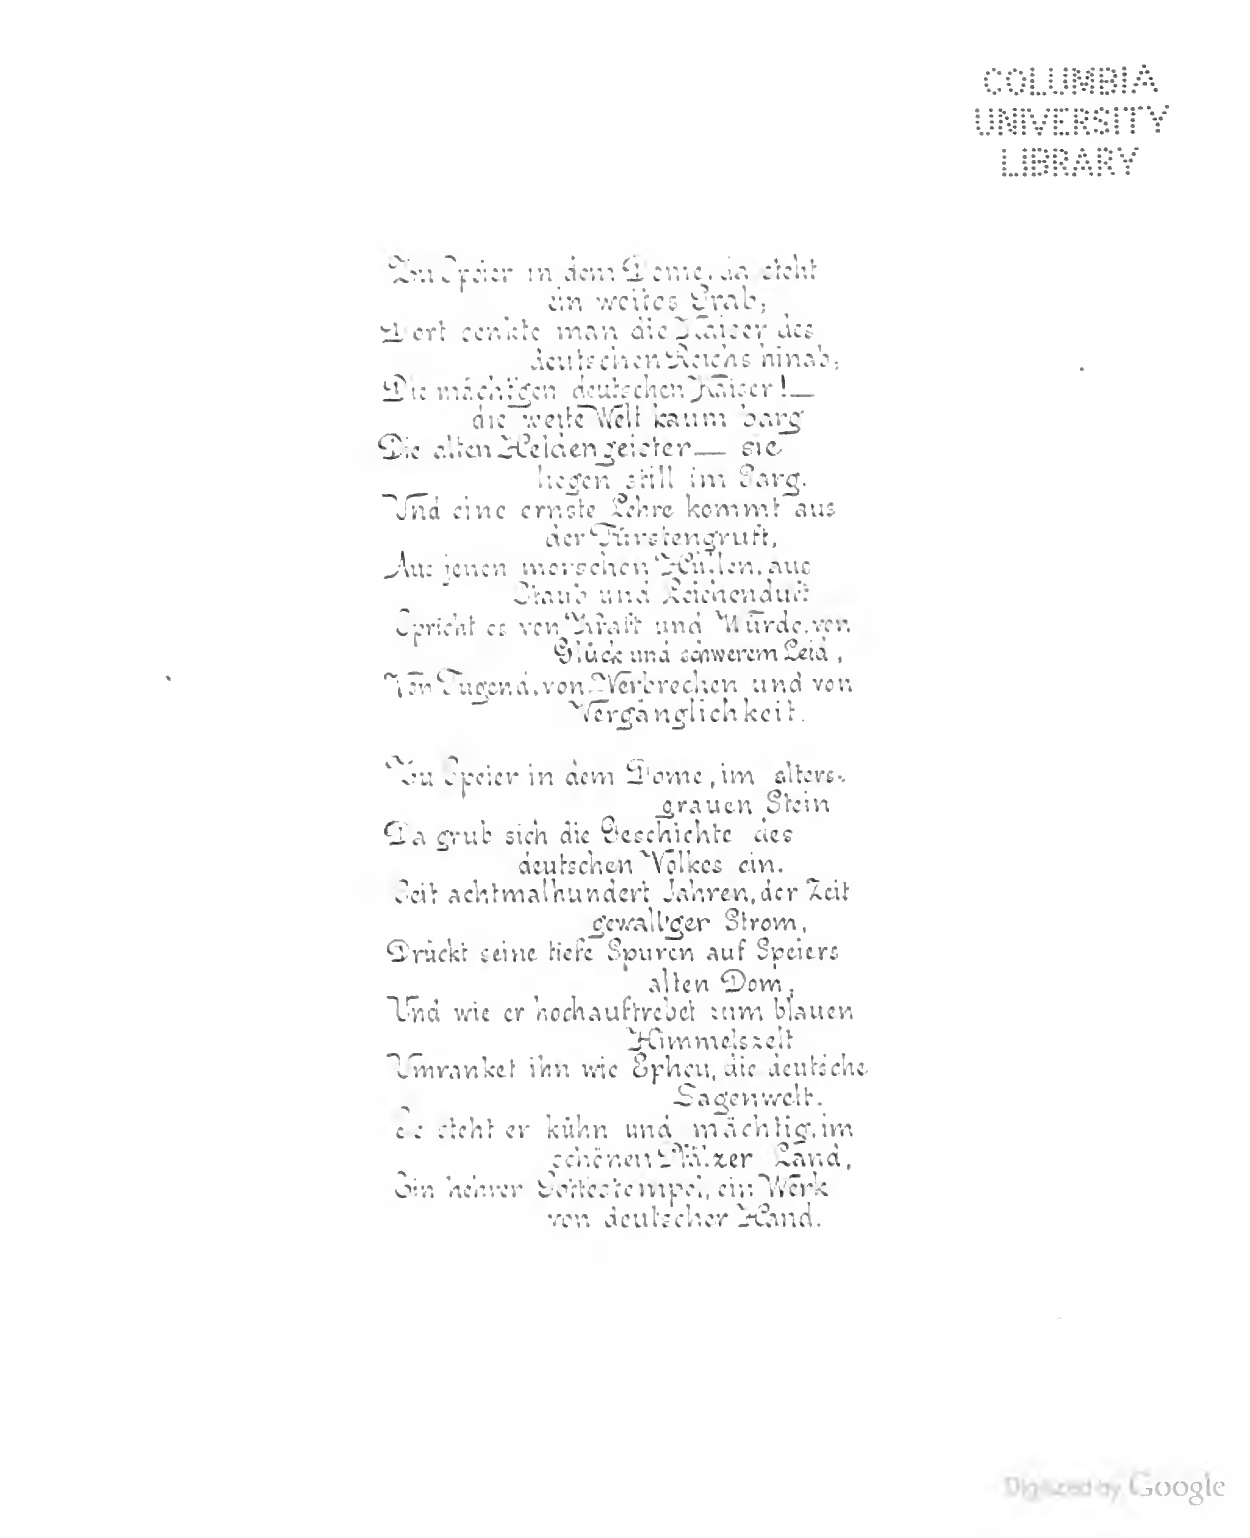 COLUMBIA
UNIVERSITY
LIBRARY
Zu Speier in dem Dome, da steht
ein weites Grab,
Dort senkte man die Kaiser des
deutschen Reichs hinab,
Die mächt'gen deutschen Kaiser! —
die weite Welt kaum barg
Die alten Heldengeister — sie
liegen still im Sarg.
Und eine ernste Lehre kommt aus
der Fürstengruft,
Aus jenen morschen Hüllen, aus
Staub und Leichenduft
Spricht es von Kraft und Würde, von
Glück und schwerem Leid,
Von Tugend, von Verbrechen und von
Vergänglichkeit.
Zu Speier in dem Dome, im alters-
grauen Stein
Da grub sich die Geschichte des
deutschen Volkes ein.
Seit achtmalhundert Jahren, der Zeit
gewalt'ger Strom,
Drückt seine tiefe Spuren auf Speiers
alten Dom,
Und wie er hochaufstrebet zum blauen
Himmelszelt
Umranket ihn wie Epheu, die deutsche
Sagenwelt.
So steht er kühn und mächtig, im
schönen Pfälzer Land,
Ein hehrer Gottestempel, ein Werk
von deutscher Hand.
Digitized by Google